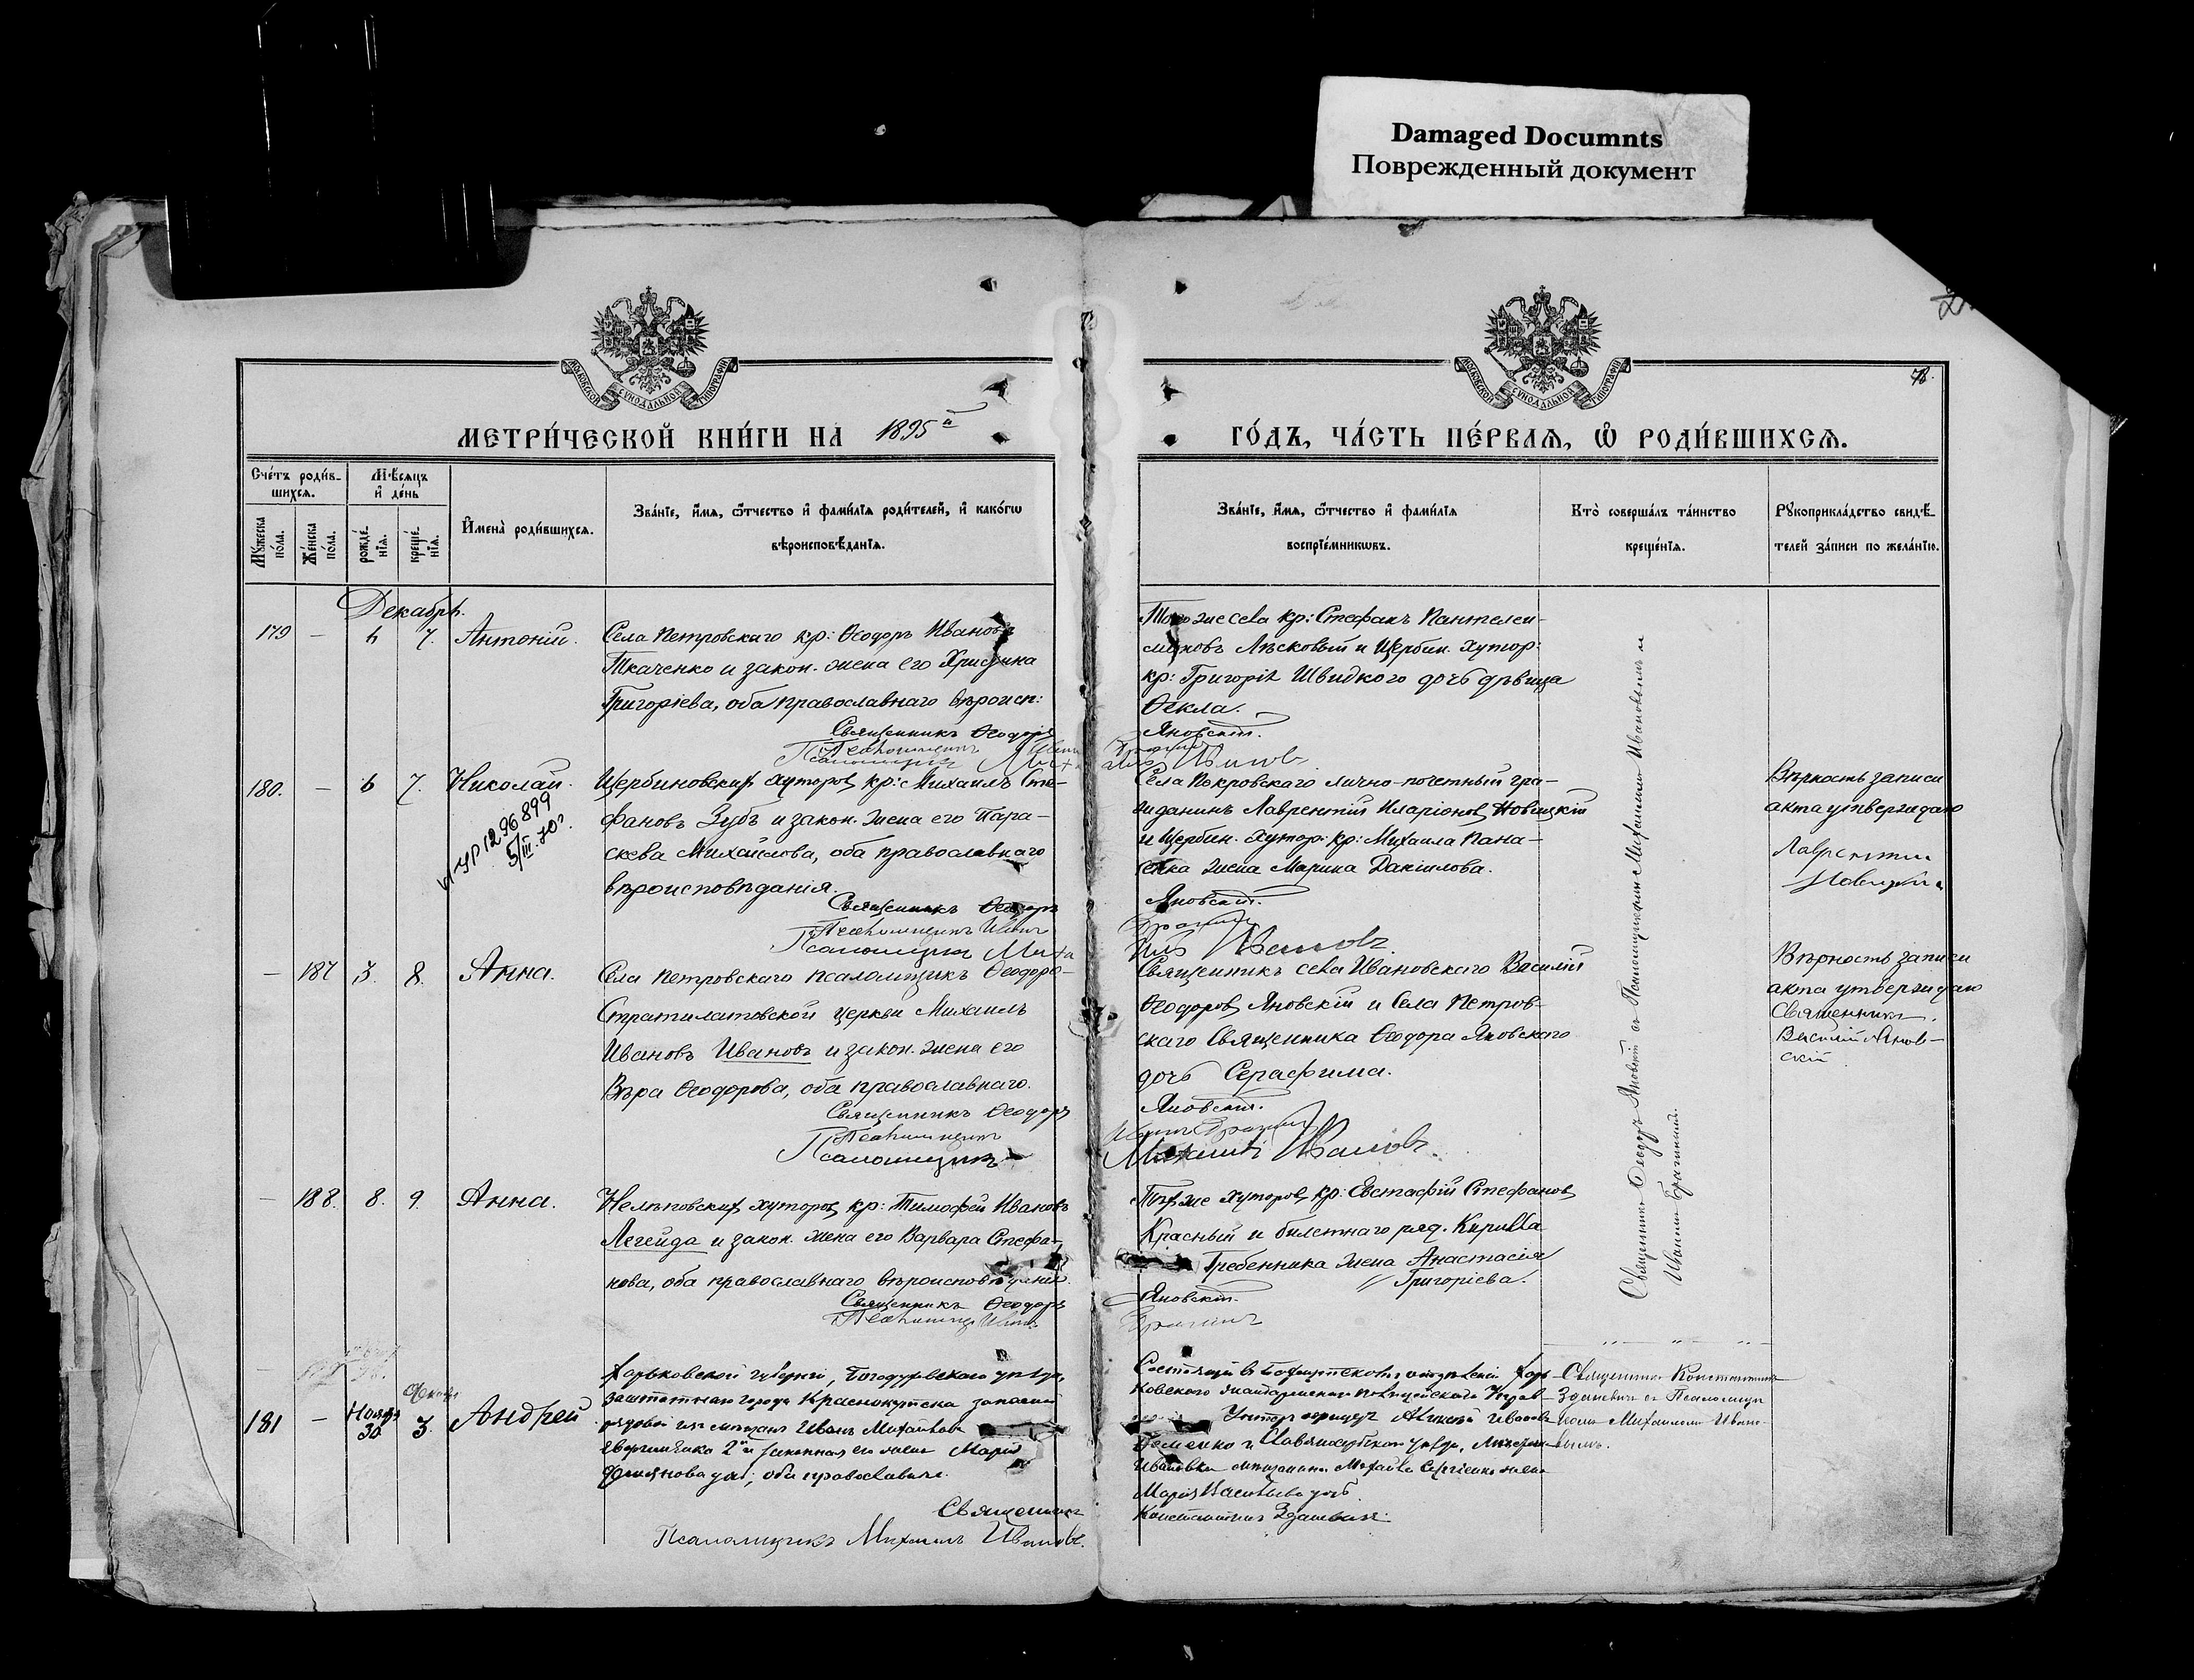 Damaged Documnts
Поврежденный документ
МОСКОВСКОЙ СУНОДАЛЬНОЙ ТИПОГРАФІИ
МОСКОВСКОЙ СУНОДАЛЬНОЙ ТИПОГРАФІИ
МЕТРИ́ЧЕСКОЙ КНИ́ГИ НА 1895й
ГО́ДЪ, ЧА́СТЬ ПЕ́РВАѦ, Ѡ҆ РОДИ́ВШИХСѦ.
Сче́тъ роди́в-
шихсѧ.
Мѣ́сѧцъ
и҆ де́нь
Мꙋ́жеска по́ла.
Же́нска по́ла.
рожде́-
нїѧ.
креще́-
нїѧ.
И҆мена̀ роди́вшихсѧ.
Зва́нїе, и҆́мѧ, ѻ҆́тчество и҆ фами́лїѧ роди́телей, и҆ како́гѡ
вѣроисповѣ́данїѧ.
Зва́нїе, и҆́мѧ, ѻ҆́тчество и҆ фами́лїѧ
воспрїе́мникѡвъ.
Кто̀ соверша́лъ та́инство
креще́нїѧ.
Рꙋкоприкла́дство свидѣ́-
телей за́писи по жела́нїю.
Декабрь.
179 — 6 7. Антоній.
Села Петровскаго кр: Ѳеодоръ Ивановъ
Ткаченко и закон. жена его Христина
Григоріева, оба православнаго вѣроисп:
Священникъ Ѳеодоръ
Псаломщикъ
Того же села кр: Стефанъ Пантелеи-
моновъ Лѣсковый и Щербин. хутор:
кр: Григорія Швидкого дочь дѣвица
Ѳекла.
Яновскій.
Ивановъ
180. — 6 7. Николай.
1296899
5/III.70г.
Щербиновскихъ хуторовъ кр: Михаилъ Сте-
фановъ Зубъ и закон. жена его Пара-
скева Михайлова, оба православнаго
вѣроисповѣданія.
Священникъ Ѳеодоръ
Псаломщикъ Миха
Села Покровскаго лично-почетный гра-
жданинъ Лаврентій Иларіоновъ Новицкій
и Щербин. хутор: кр: Михаила Пана-
сенка жена Марина Даніилова.
Яновскій.
илъ Ивановъ
Вѣрность записи
акта утверждаю
Лаврентій
Новицкій
— 187 3. 8. Анна.
Села Петровскаго псаломщикъ Ѳеодоро-
Стратилатовской церкви Михаилъ
Ивановъ Ивановъ и закон. жена его
Вѣра Ѳеодорова, оба православнаго.
Священникъ Ѳеодоръ
Псаломщикъ
Священникъ села Ивановскаго Василій
Ѳеодоровъ Яновскій и Села Петров-
скаго Священника Ѳеодора Яновскаго
дочь Серафима.
Яновскій.
Михаилъ Ивановъ.
Вѣрность записи
акта утверждаю
Священникъ
Василій Янов-
скій
— 188. 8. 9. Анна.
Нелѣповскихъ хуторовъ кр: Тимофей Ивановъ
Легейда и закон. жена его Варвара Стефа-
нова, оба православнаго вѣроисповѣданія.
Священникъ Ѳеодоръ
Тѣхъ же хуторовъ кр: Евстафій Стефановъ
Красный и билетнаго ряд. Кирилла
Гребенника жена Анастасія
Григоріева.
Яновскій.
Священникъ Ѳеодоръ Яновскій съ Псаломщиками Михаиломъ Ивановымъ и
181 — Ноября 30 Декабр 3. Андрей
Харьковской губерніи, Богодуховскаго уѣзда,
заштатнаго города Краснокутска запасный
рядовой изъ мѣщанъ Иванъ Михайловъ
и законная его жена Марія
оба православные.
Священникъ
Псаломщикъ Михаилъ Ивановъ.
Унтеръ офицеръ Алексѣй Ивановъ
Марія Васильева дочь
Константинъ Здановичъ.
Священникъ Константинъ
Здановичъ съ Псаломщи-
комъ Михаиломъ Ивано-
вымъ.